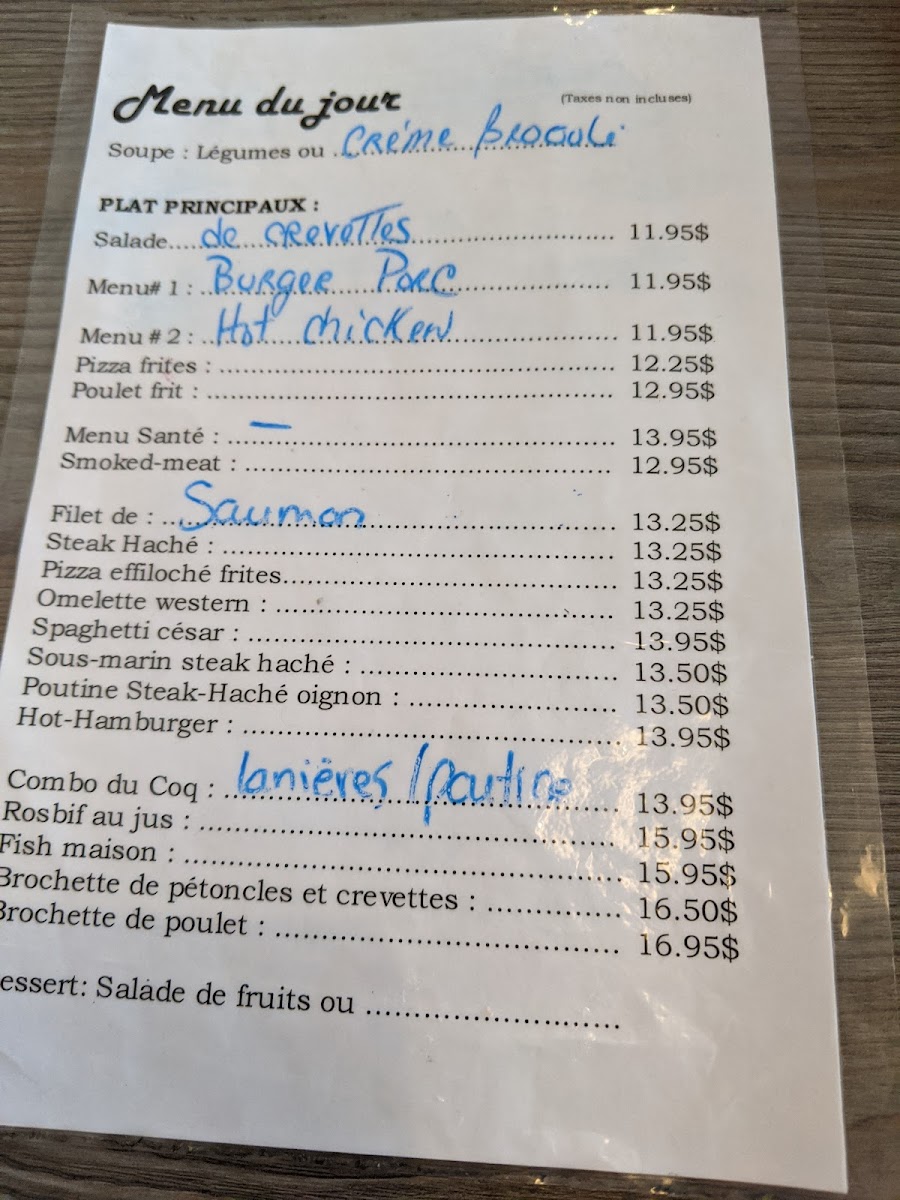 Menu du jour (Taxes non incluses)
Soupe : Légumes ou ..Crème Brocoli
PLAT PRINCIPAUX :
Salade.....de crevettes............................ 11.95$
Menu# 1 : ..Burger Porc...................... 11.95$
Menu # 2 : ..Hot chicken...................... 11.95$
Pizza frites : ...................................................... 12.25$
Poulet frit : ........................................................ 12.95$
Menu Santé : ...—................................................. 13.95$
Smoked-meat : .................................................. 12.95$
Filet de : ...Saumon................................... 13.25$
Steak Haché : .................................................... 13.25$
Pizza effiloché frites............................................ 13.25$
Omelette western : ............................................. 13.25$
Spaghetti césar : ................................................ 13.95$
Sous-marin steak haché : .................................. 13.50$
Poutine Steak-Haché oignon : ........................... 13.50$
Hot-Hamburger : ................................................ 13.95$
Combo du Coq : ..lanières / poutine...... 13.95$
Rosbif au jus : .................................................... 15.95$
Fish maison : ..................................................... 15.95$
Brochette de pétoncles et crevettes : ............... 16.50$
Brochette de poulet : ......................................... 16.95$
essert: Salade de fruits ou ..............................